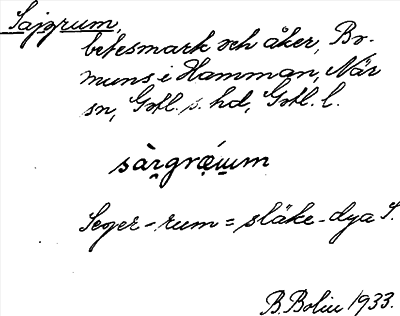 Sajgrum,
betesmark och åker, Br-
muns i Hamman, När
sn, Gotl. s. hd, Gotl. l.
sàrgrǽum
= släke-dya S.
B. Bolin 1933.